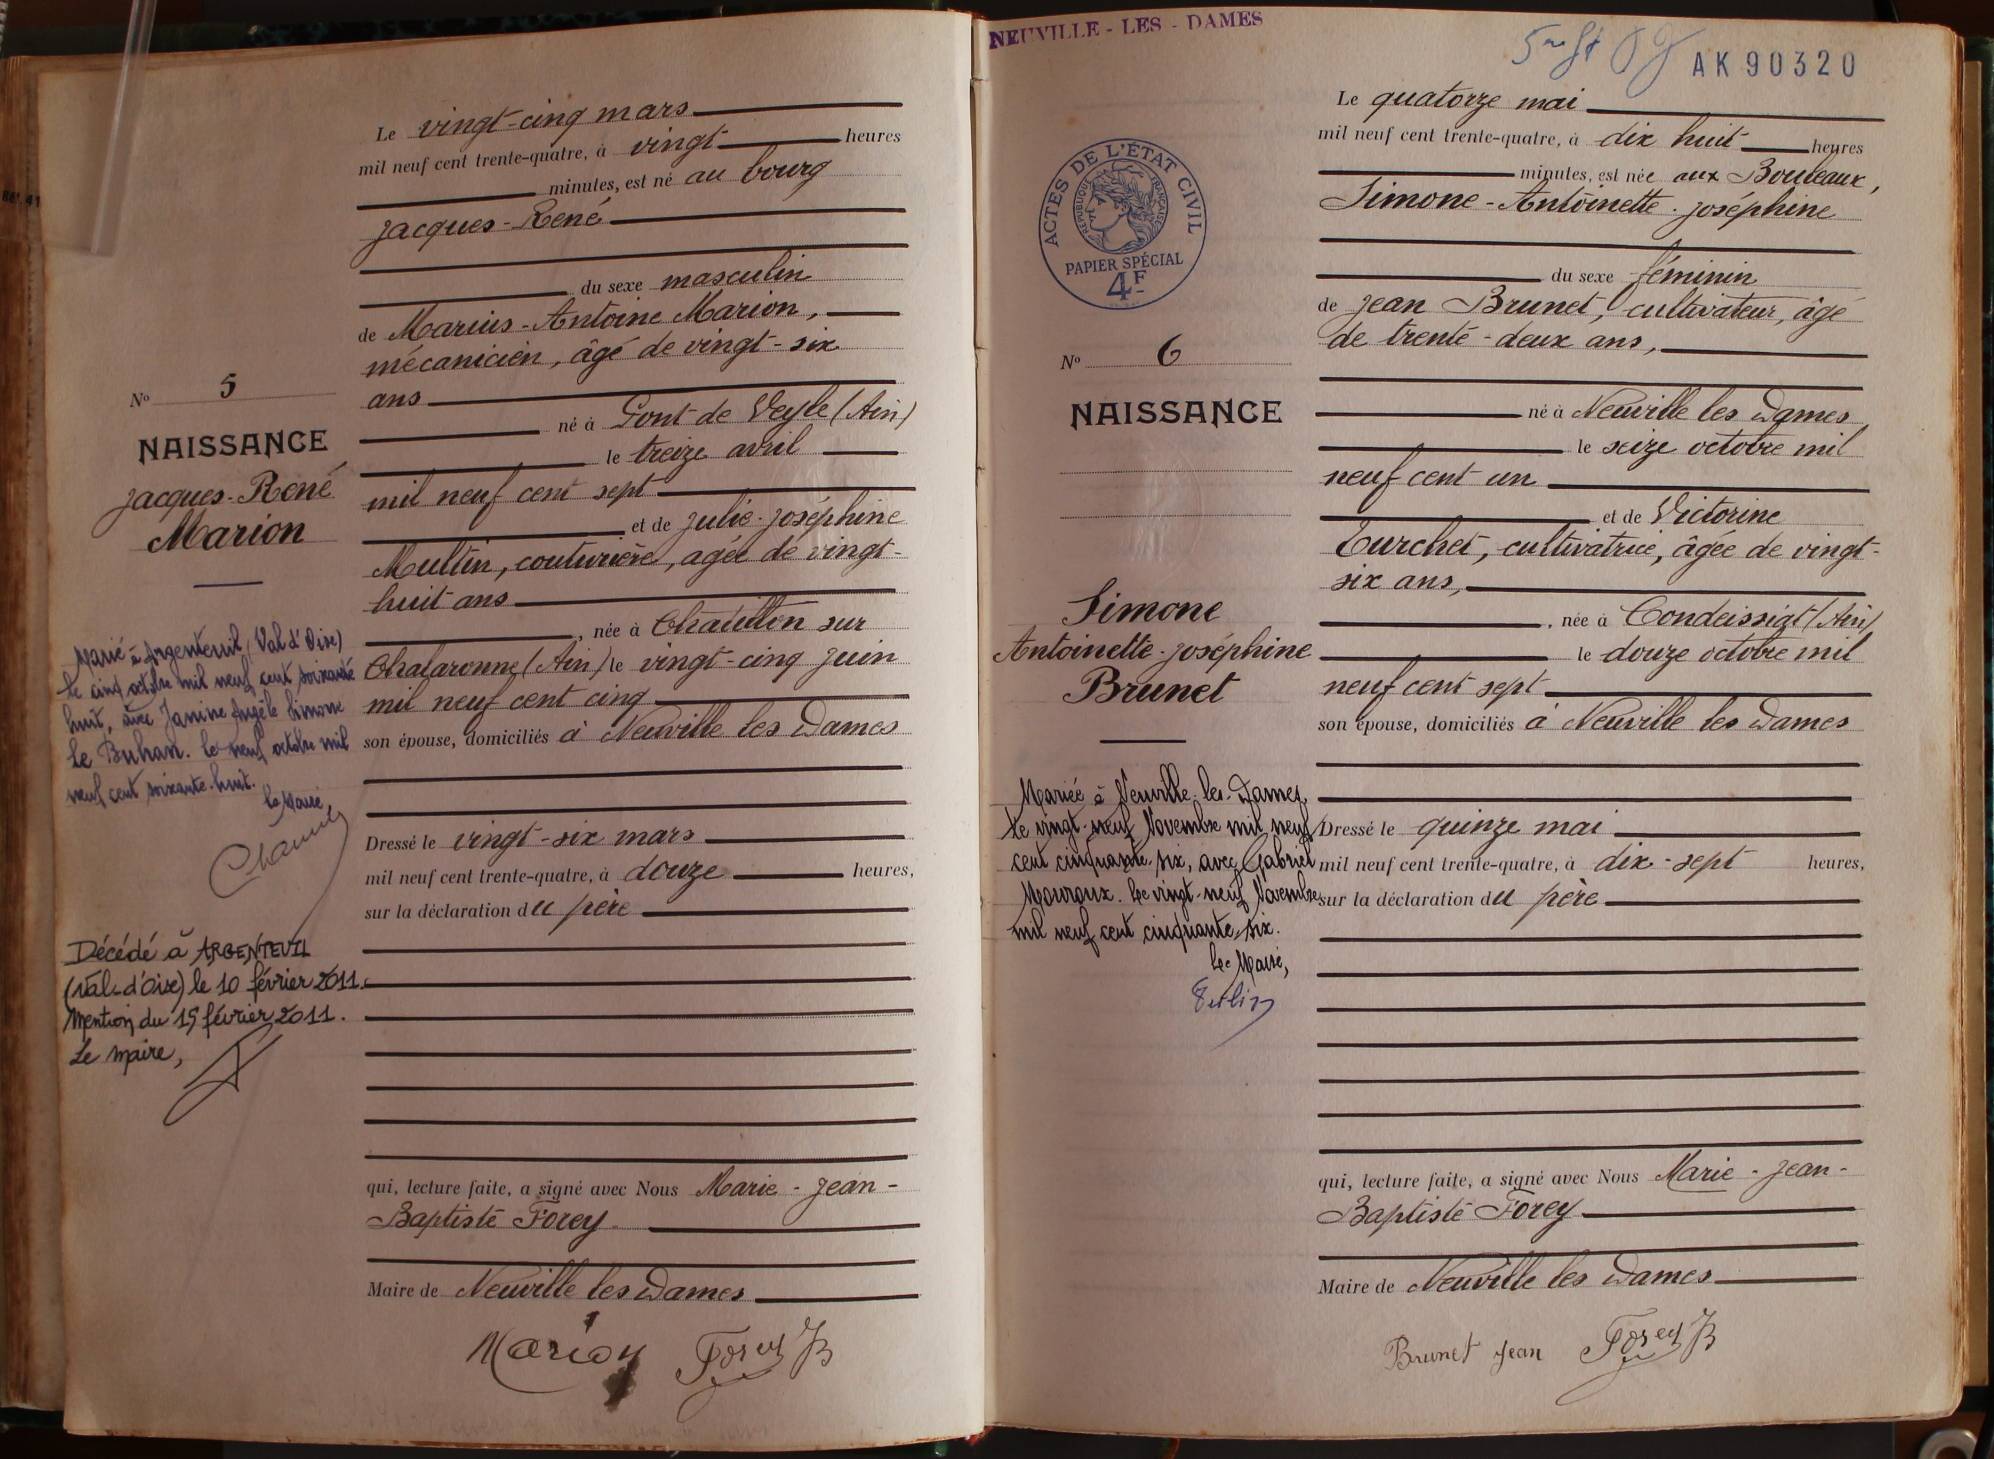 Le vingt-cinq mars
mil neuf cent trente-quatre, à vingt heures
minutes, est né au bourg
Jacques-René
du sexe masculin
de Marius-Antoine Marion,
mécanicien, âgé de vingt-six
ans
né à Pont de Veyle (Ain)
le treize avril
mil neuf cent sept
et de Julie-Joséphine
Multin, couturière, agée de vingt-
huit ans
, née à Chatillon sur
Chalaronne (Ain) le vingt-cinq juin
mil neuf cent cinq
son épouse, domiciliés à Neuville les Dames
Dressé le vingt-six mars
mil neuf cent trente-quatre, à douze heures,
sur la déclaration du père
qui, lecture faite, a signé avec Nous Marie-Jean-
Baptiste Forey
Maire de Neuville les Dames
Marion Forey JB
No 5
NAISSANCE
Jacques-René
Marion
Marié à Argenteuil (Val d'Oise)
le cinq octobre mil neuf cent soixante
huit, avec Janine Angèle Simone
Le Buhan. Le neuf octobre mil
neuf cent soixante-huit.
Le Maire,
Décédé à ARGENTEUIL
(Val-d'Oise) le 10 février 2011.
Mention du 15 février 2011.
Le maire,
NEUVILLE - LES - DAMES
AK90320
ACTES DE L'ÉTAT CIVIL
RÉPUBLIQUE FRANÇAISE
PAPIER SPÉCIAL
4F
No 6
NAISSANCE
Simone
Antoinette-Joséphine
Brunet
Mariée à Neuville-les-Dames,
le vingt-neuf Novembre mil neuf
cent cinquante-six, avec Gabriel
Mouroux. Le vingt-neuf Novembre
mil neuf cent cinquante-six.
Le Maire,
Le quatorze mai
mil neuf cent trente-quatre, à dix huit heures
minutes, est née aux Bouleaux,
Simone-Antoinette-Joséphine
du sexe féminin
de Jean Brunet, cultivateur, âgé
de trente-deux ans,
né à Neuville les Dames
le seize octobre mil
neuf cent un
et de Victorine
Turchet, cultivatrice, âgée de vingt-
six ans,
, née à Condeissiat (Ain)
le douze octobre mil
neuf cent sept
son épouse, domiciliés à Neuville les Dames
Dressé le quinze mai
mil neuf cent trente-quatre, à dix-sept heures,
sur la déclaration du père
qui, lecture faite, a signé avec Nous Marie-Jean-
Baptiste Forey
Maire de Neuville les Dames
Brunet Jean Forey JB